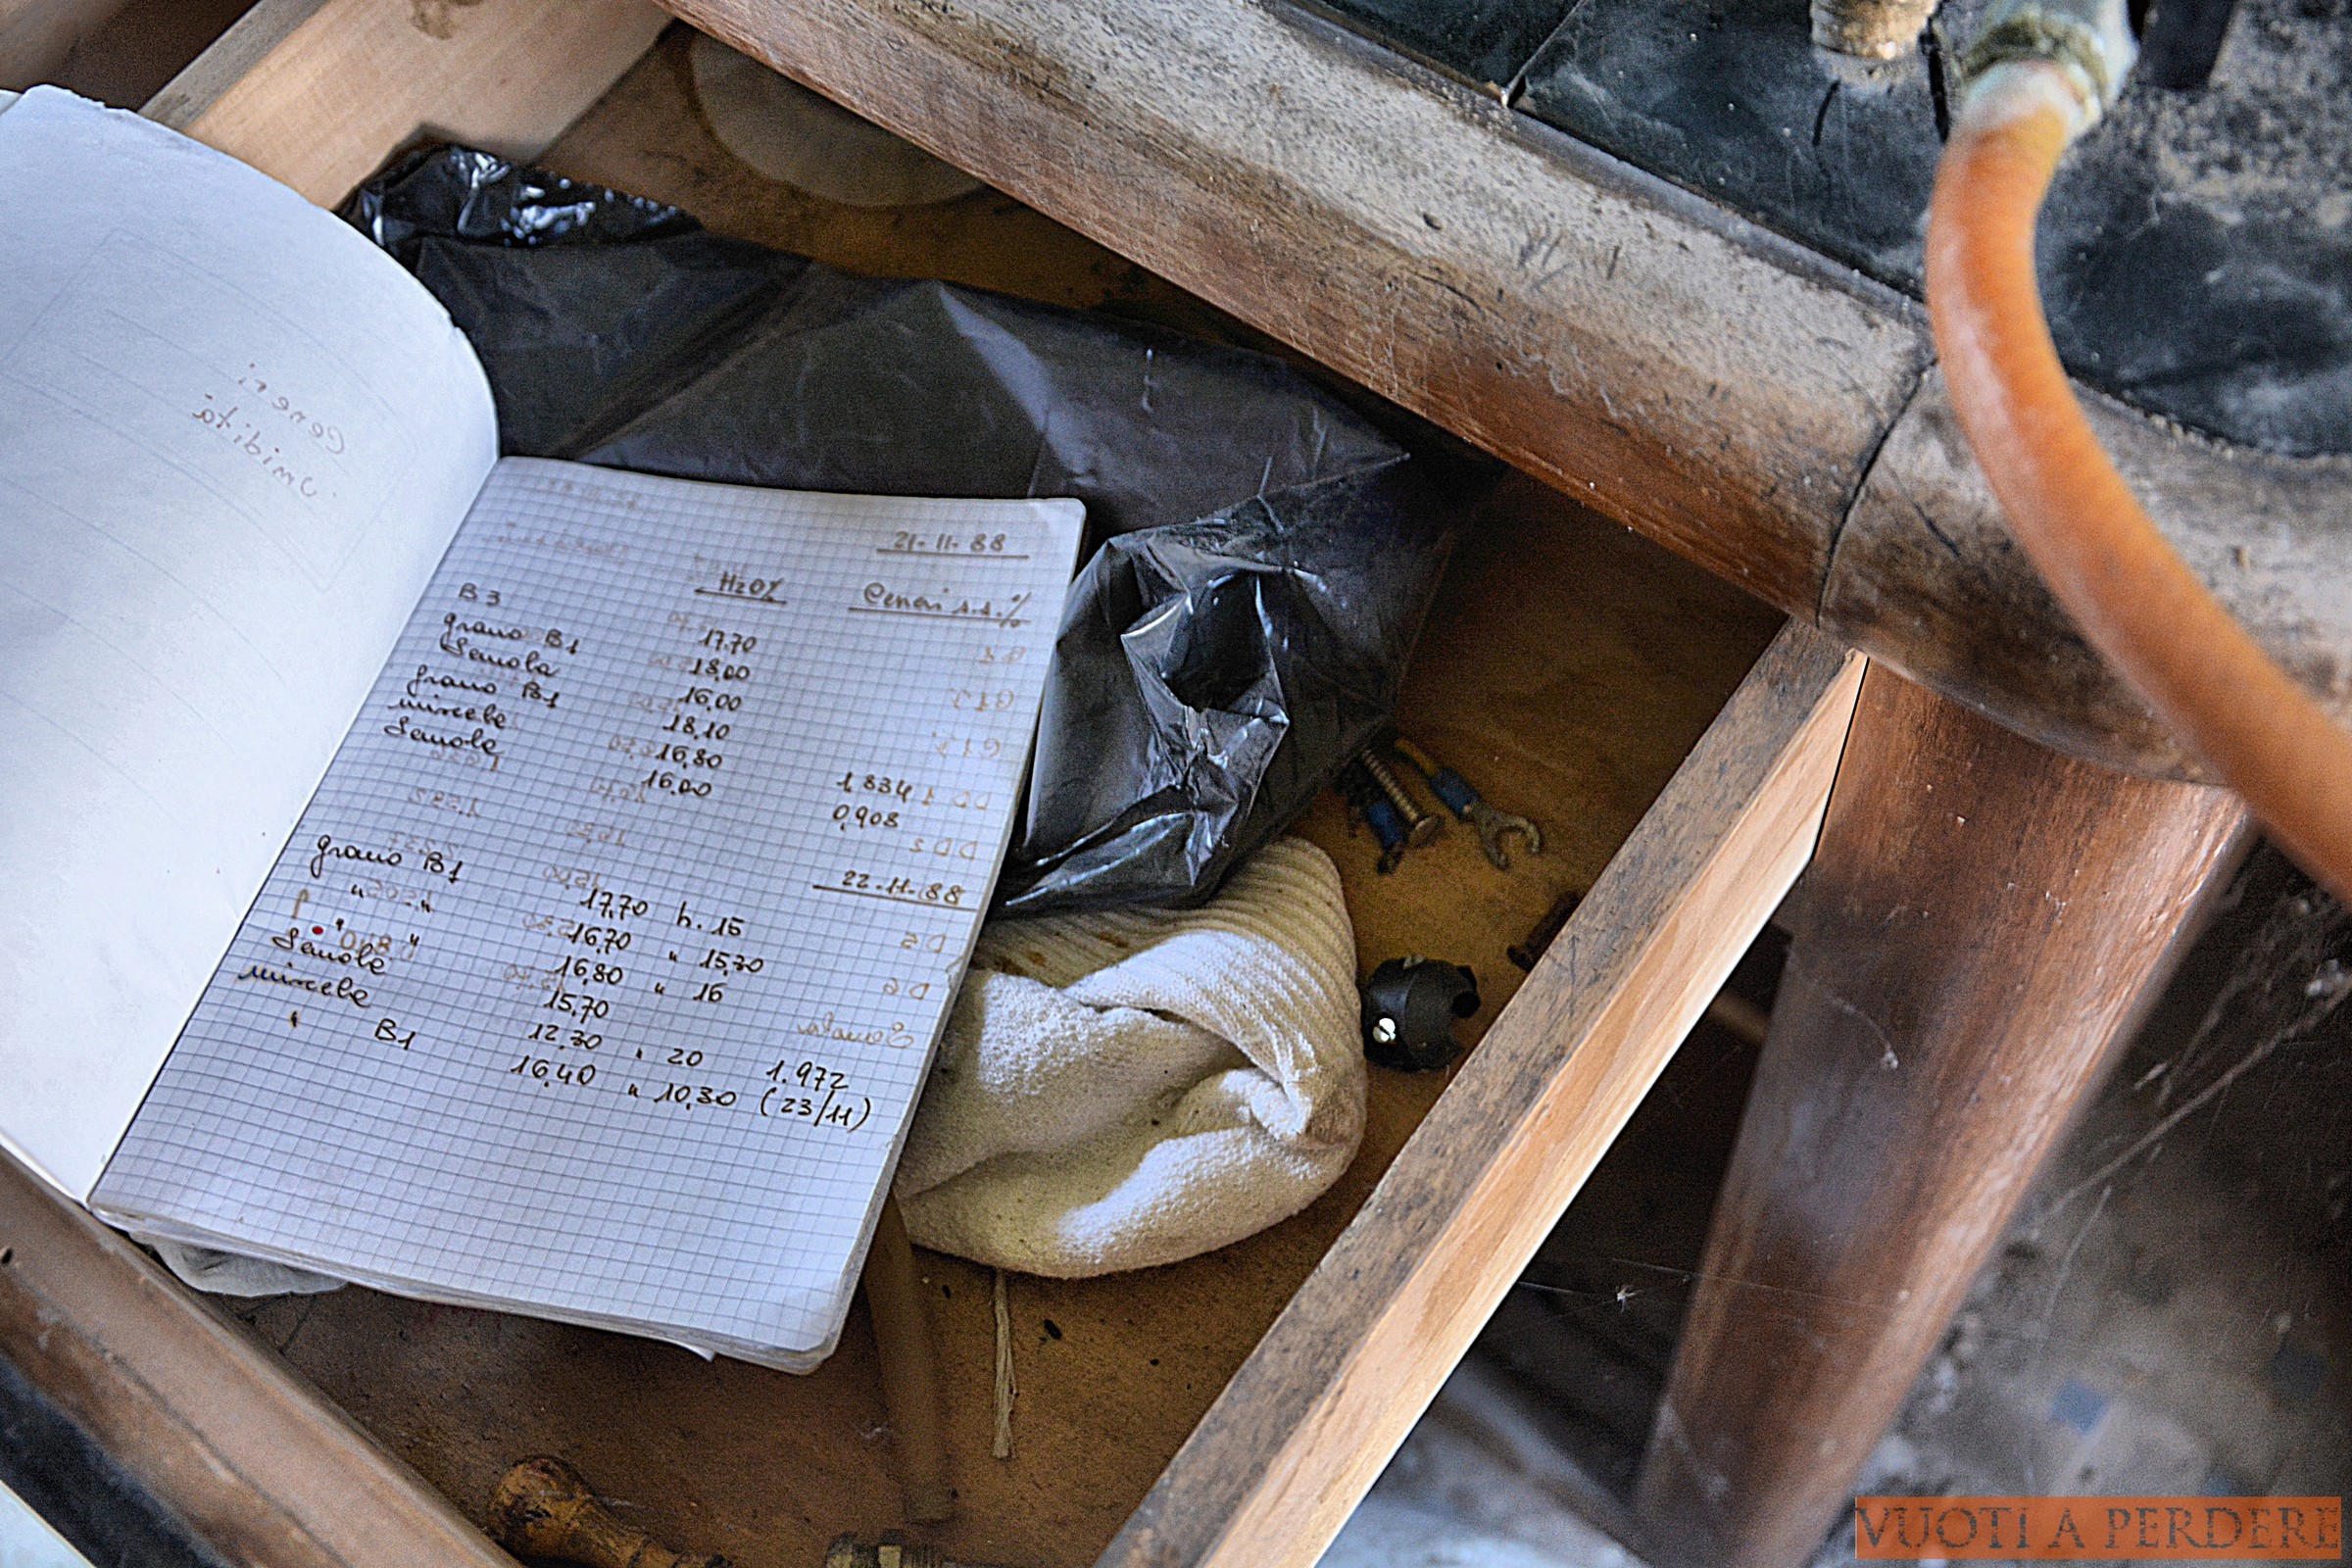 Ceneri
Umidità
21-11-88
H2O% Ceneri s.s.%
B3
grano B1 17.70
Semola 18,00
grano B1 16,00
miscela 18,10
Semola 16,80
16,00 1,834
0,908
22-11-88
grano B1 17,70 h. 15
" " 16,70 " 15,30
" " 16,80 " 16
Semola 15,70
miscela 12,30 " 20 1.972
" B1 16,40 " 10,30 (23/11)
VUOTI A PERDERE